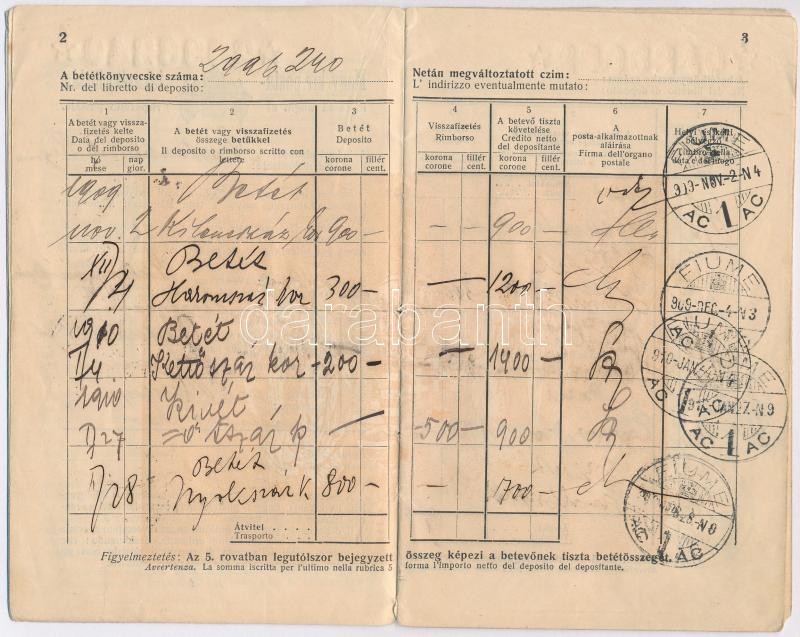 2
A betétkönyvecske száma: 2996240
Nr. del libretto di deposito:
1
A betét vagy vissza-
fizetés kelte
Data del deposito
o del rimborso
hó
mese
nap
gior.
2
A betét vagy visszafizetés
összege betükkel
Il deposito o rimborso scritto con
lettere
3
Betét
Deposito
korona
corone
fillér
cent.
1909 Betét
nov. 2 Kilenczszáz kor 900 —
XII/4 Betét
Háromszáz kor 300 —
1910 Betét
I/4 Kettőszáz kor 200 —
1910 Kivét
I/27 —
I/28 Betét
Nyolczszáz k 800 —
Átvitel
Trasporto
Figyelmeztetés: Az 5. rovatban legutólszor bejegyzett
Avvertenza. La somma iscritta per l'ultimo nella rubrica 5
3
Netán megváltoztatott czim:
L' indirizzo eventualmente mutato:
4
Visszafizetés
Rimborso
korona
corone
fillér
cent.
5
A betevő tiszta
követelése
Credito netto
del depositante
korona
corone
fillér
cent.
6
A
posta-alkalmazottnak
aláirása
Firma dell'organo
postale
7
— 900 —
— 1200 —
— 1400 —
500 — 900
— 1700 —
FIUME
909-NOV.-2-N4
AC 1 AC
FIUME
909-DEC.-4-N3
FIUME
910-JAN
AC
AC 1 AC
FIUME
AC
összeg képezi a betevőnek tiszta betétösszegét.
forma l'importo netto del deposito del depositante.
darabanth